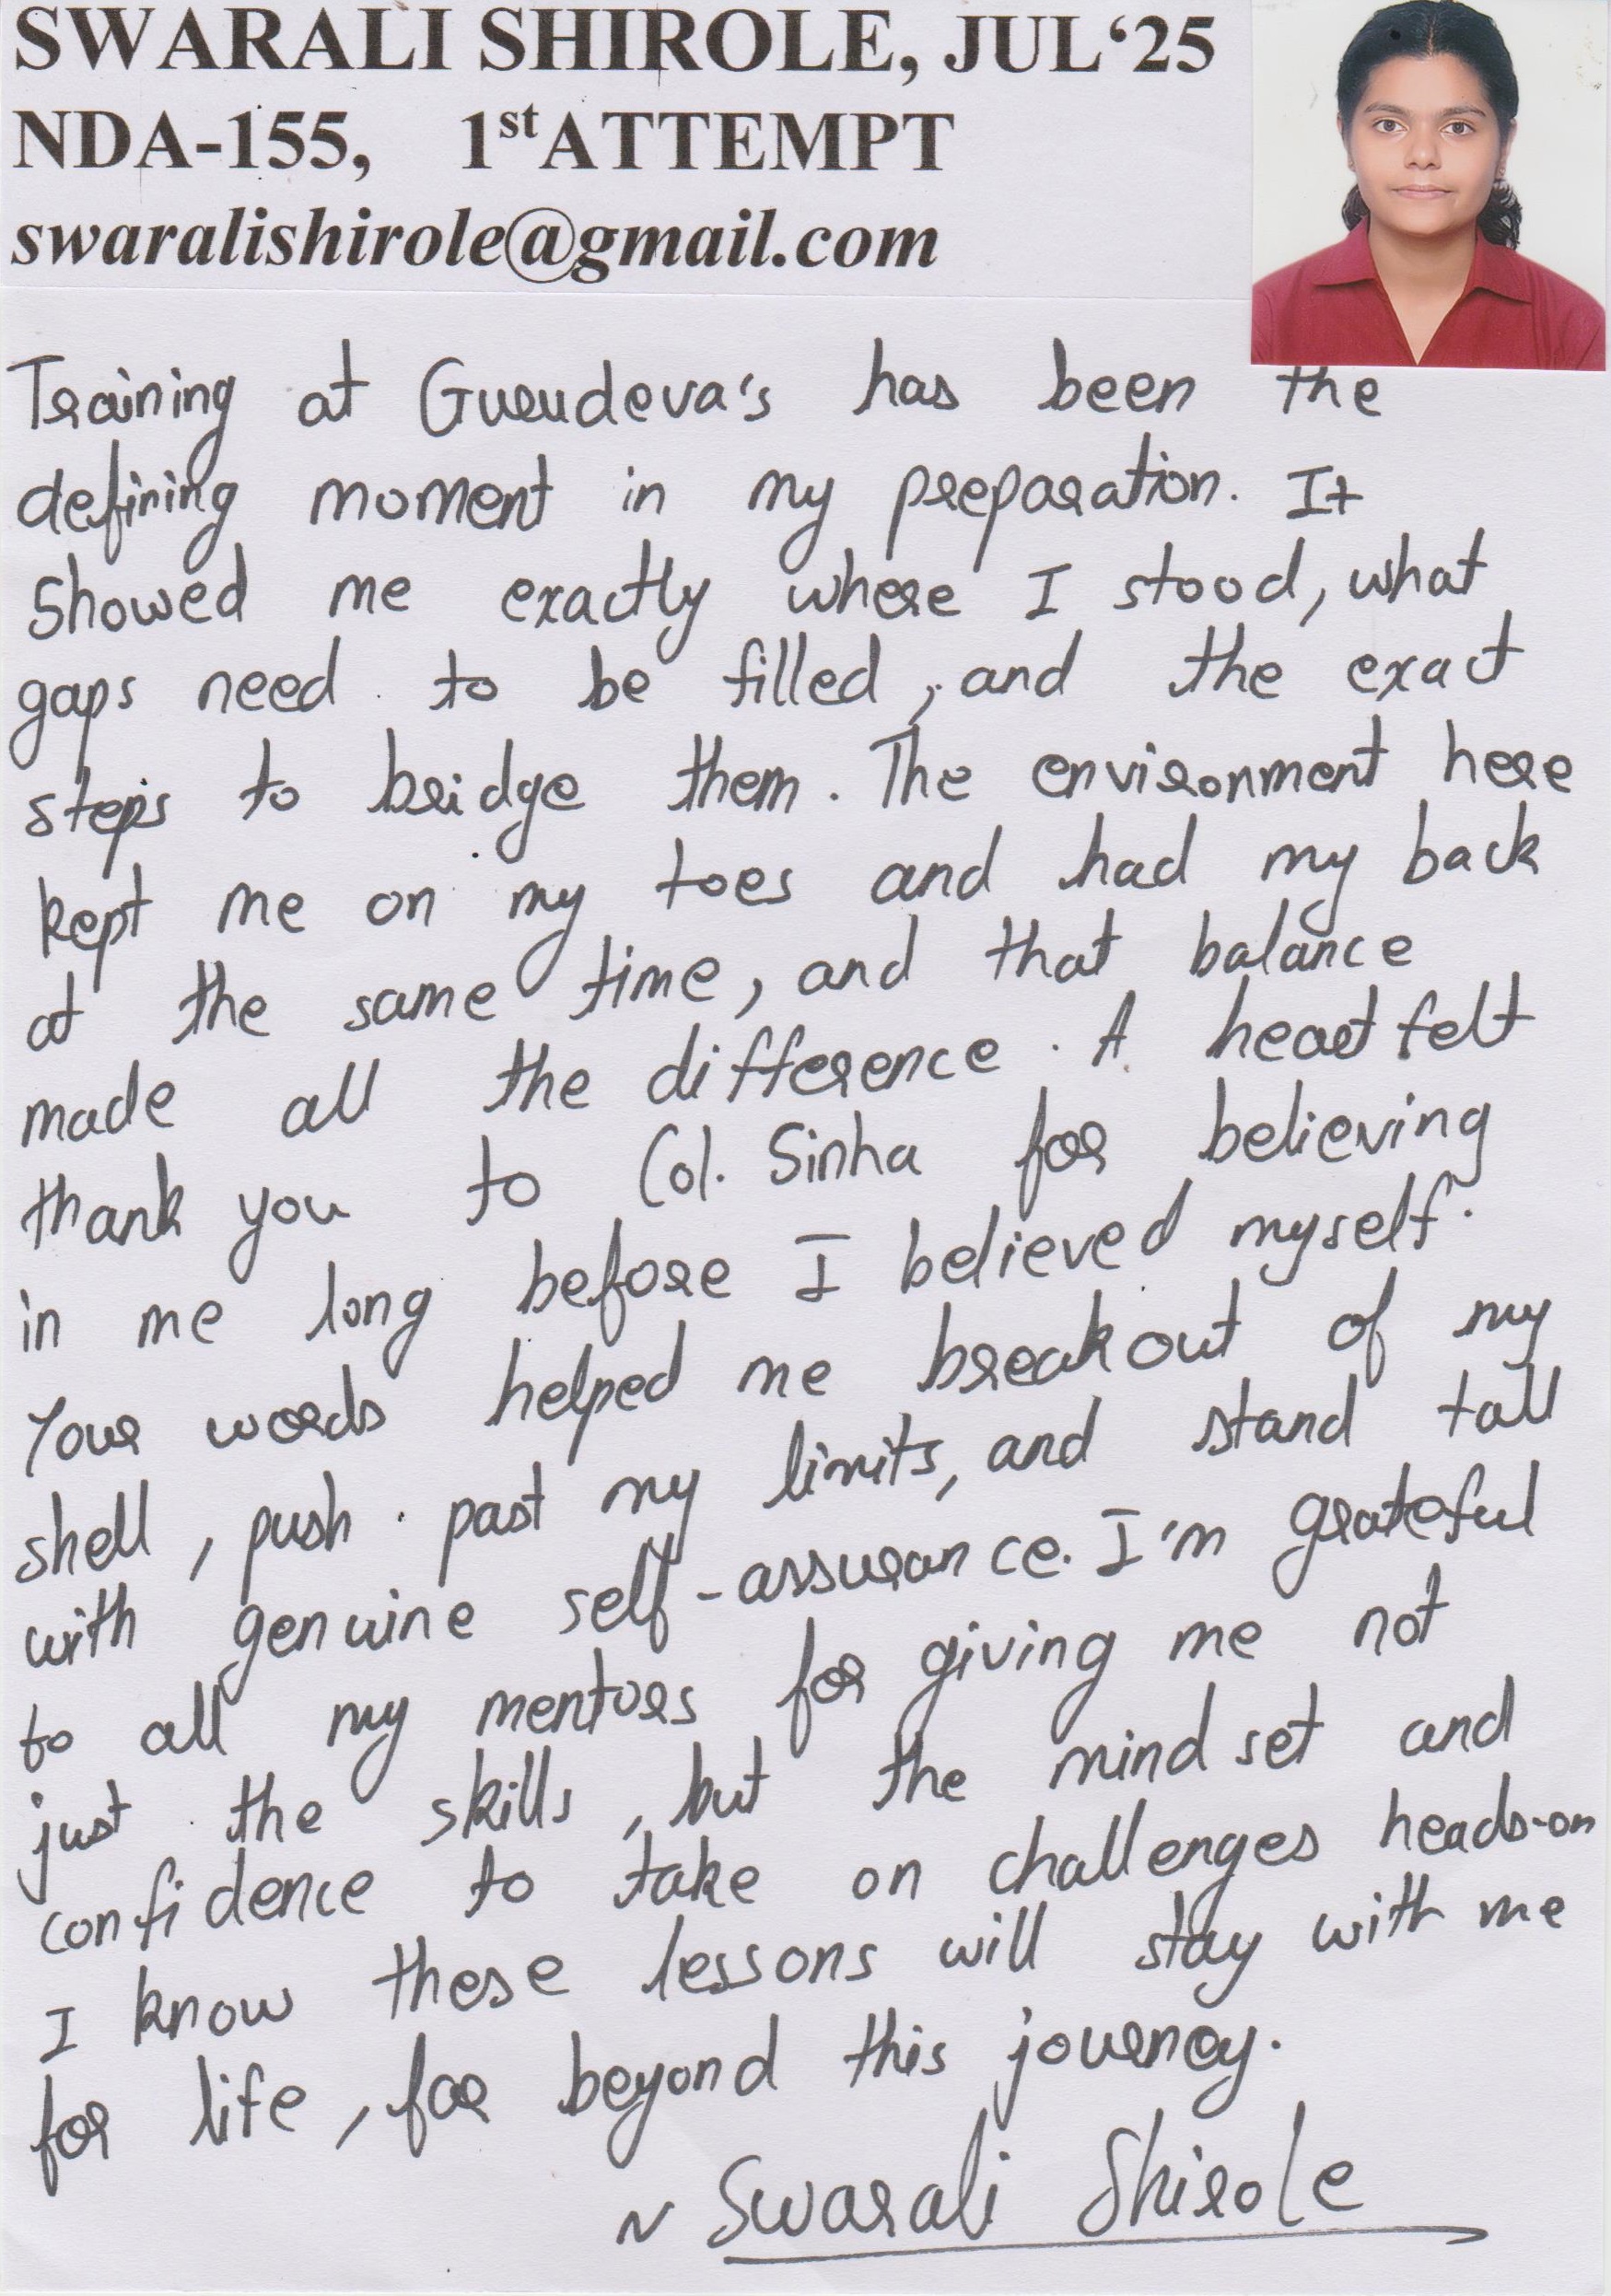 SWARALI SHIROLE, JUL‘25
NDA-155, 1st ATTEMPT
swaralishirole@gmail.com
Training at Gurudeva's has been the
defining moment in my preparation. It
showed me exactly where I stood, what
gaps need to be filled, and the exact
steps to bridge them. The environment here
kept me on my toes and had my back
at the same time, and that balance
made all the difference. A heartfelt
thank you to Col. Sinha for believing
in me long before I believed myself.
Your words helped me breakout of my
shell, push past my limits, and stand tall
with genuine self-assurance. I'm grateful
to all my mentors for giving me not
just the skills, but the mindset and
confidence to take on challenges heads-on
I know these lessons will stay with me
for life, far beyond this journey.
~ Swarali Shirole